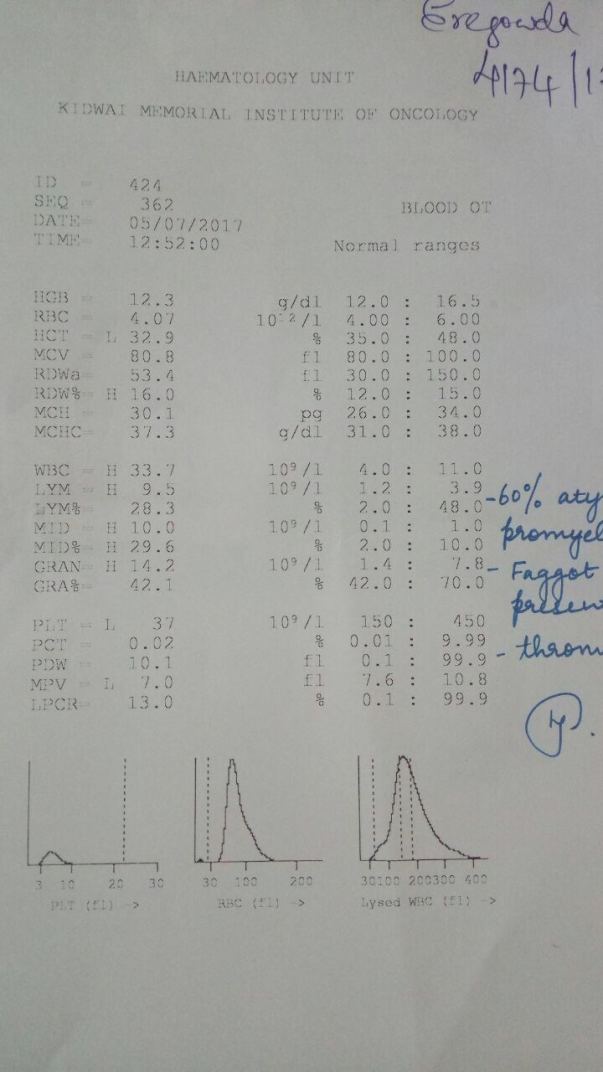 Eregowda
4174/1
HAEMATOLOGY UNIT
KIDWAI MEMORIAL INSTITUTE OF ONCOLOGY
ID = 424
SEQ = 362
BLOOD OT
DATE= 05/07/2017
TIME= 12:52:00
Normal ranges
HGB = 12.3 g/dl 12.0 : 16.5
RBC = 4.07 10¹²/l 4.00 : 6.00
HCT = L 32.9 % 35.0 : 48.0
MCV = 80.8 fl 80.0 : 100.0
RDWa= 53.4 fl 30.0 : 150.0
RDW% = H 16.0 % 12.0 : 15.0
MCH = 30.1 pg 26.0 : 34.0
MCHC= 37.3 g/dl 31.0 : 38.0
WBC = H 33.7 10⁹/l 4.0 : 11.0
LYM = H 9.5 10⁹/l 1.2 : 3.9
LYM% = 28.3 % 2.0 : 48.0
MID = H 10.0 10⁹/l 0.1 : 1.0
MID% = H 29.6 % 2.0 : 10.0
GRAN= H 14.2 10⁹/l 1.4 : 7.8
GRA%= 42.1 % 42.0 : 70.0
-60% aty
promyel
- Faggot
presen
PLT = L 37 10⁹/l 150 : 450
PCT = 0.02 % 0.01 : 9.99
PDW = 10.1 fl 0.1 : 99.9
MPV = L 7.0 fl 7.6 : 10.8
LPCR= 13.0 % 0.1 : 99.9
- throm
3 10 20 30
PLT (fl) ->
30 100 200
RBC (fl) ->
30100 200300 400
Lysed WBC (fl) ->